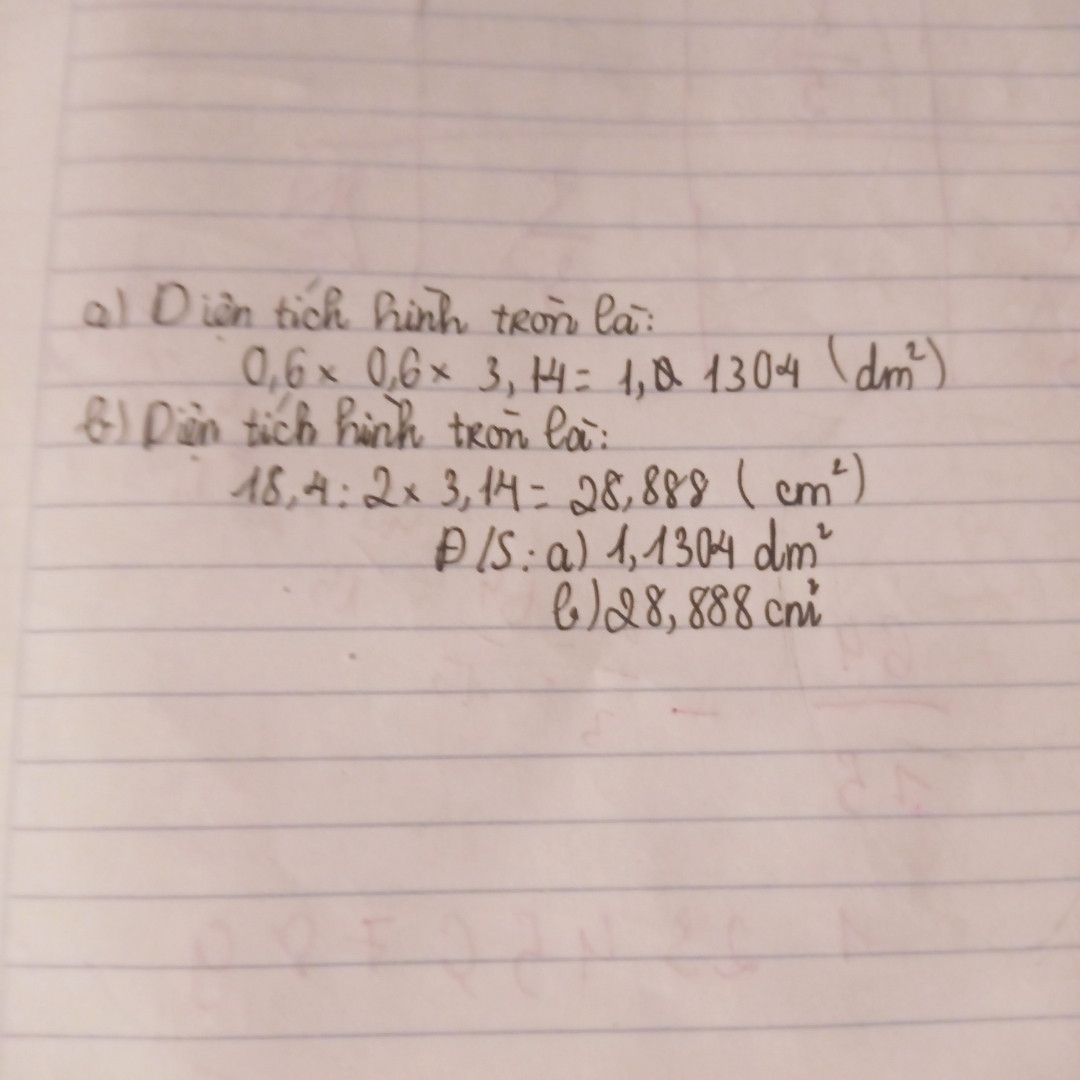 a) Diện tích hình tròn là:
0,6 x 0,6 x 3,14 = 1,1304 (dm²)
b) Diện tích hình tròn là:
18,4 : 2 x 3,14 = 28,888 (cm²)
Đ/S: a) 1,1304 dm²
b) 28,888 cm²